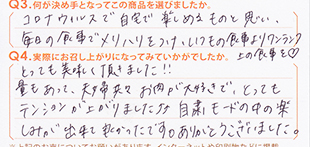 Q3.何が決め手となってこの商品を選びましたか。
コロナウィルスで自宅で楽しめるものと思い、
毎日の食事でメリハリをつけ、いつもの食事よりワンランク
上の食事を♡
Q4.実際にお召し上がりになってみていかがでしたか。
とっても美味しく頂きました!!
量もあって、夫婦共々お肉が大好きで、とっても
テンションが上がりました♪♪自粛モードの中の楽
しみが出来て良かったです ありがとうございました。